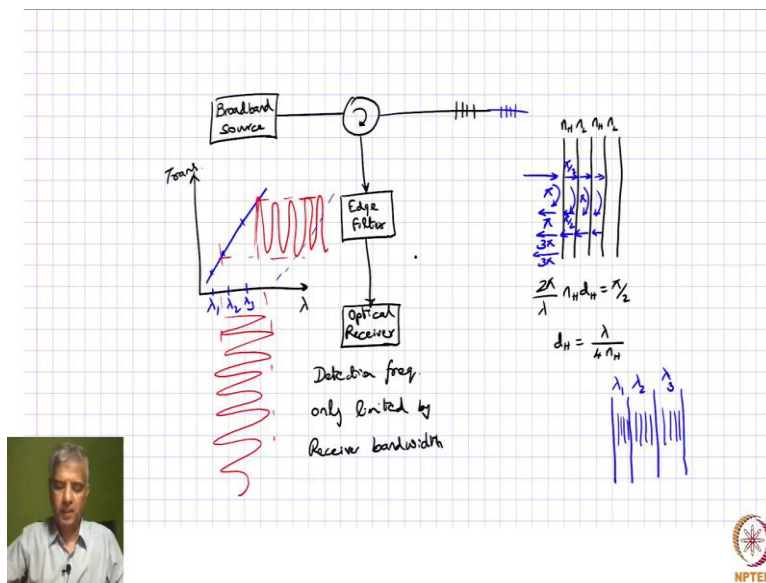 Broadband
Source
Trans.
Edge
Filter
Optical
Receiver
λ₁ λ₂ λ₃ λ
Detection freq.
only limited by
Receiver bandwidth
n_H n_L n_H n_L
π/2
π π
π π/2
3π
3π
2π/λ n_H d_H = π/2
d_H = λ/4n_H
λ₁ λ₂ λ₃
NPTEL